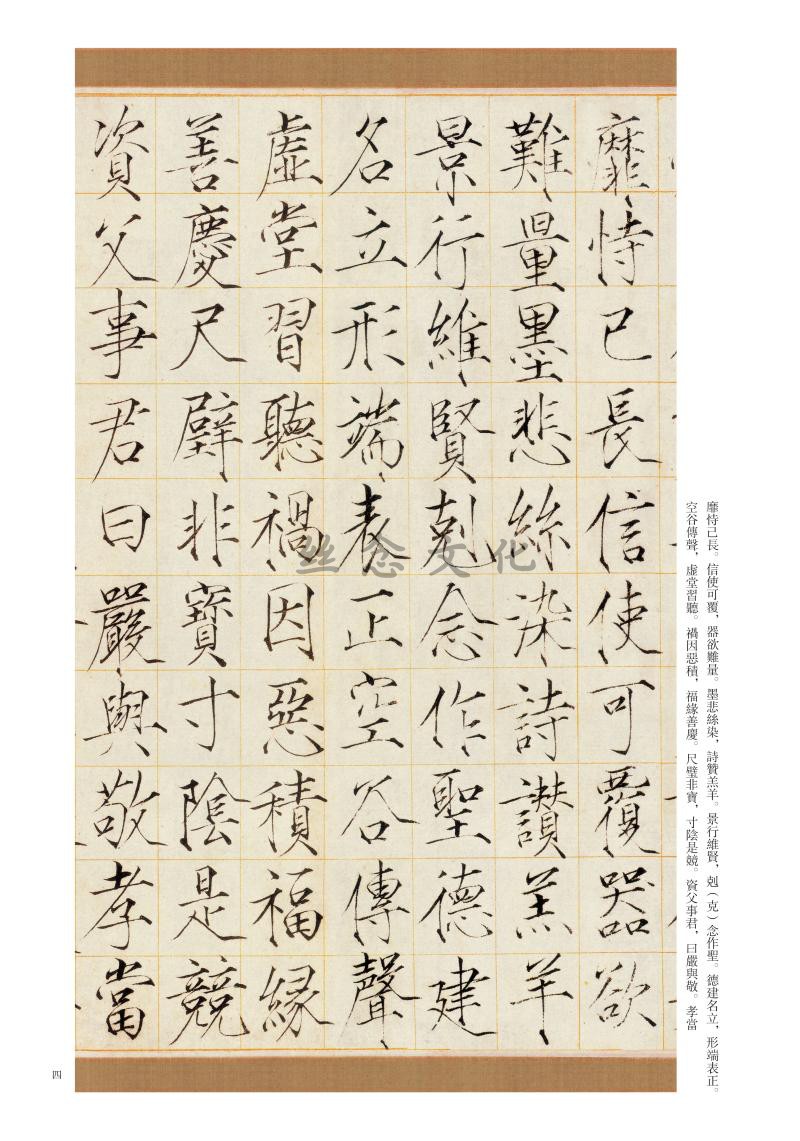 靡恃己長信使可覆器欲
難量墨悲絲染詩讃羔羊
景行維賢剋念作聖德建
名立形端表正空谷傳聲
虛堂習聽禍因惡積福緣
善慶尺璧非寶寸陰是競
資父事君曰嚴與敬孝當
丝念文化
靡恃己長。信使可覆，器欲難量。墨悲絲染，詩贊羔羊。景行維賢，剋（克）念作聖。德建名立，形端表正。
空谷傳聲，虛堂習聽。禍因惡積，福緣善慶。尺璧非寶，寸陰是競。資父事君，曰嚴與敬。孝當
四